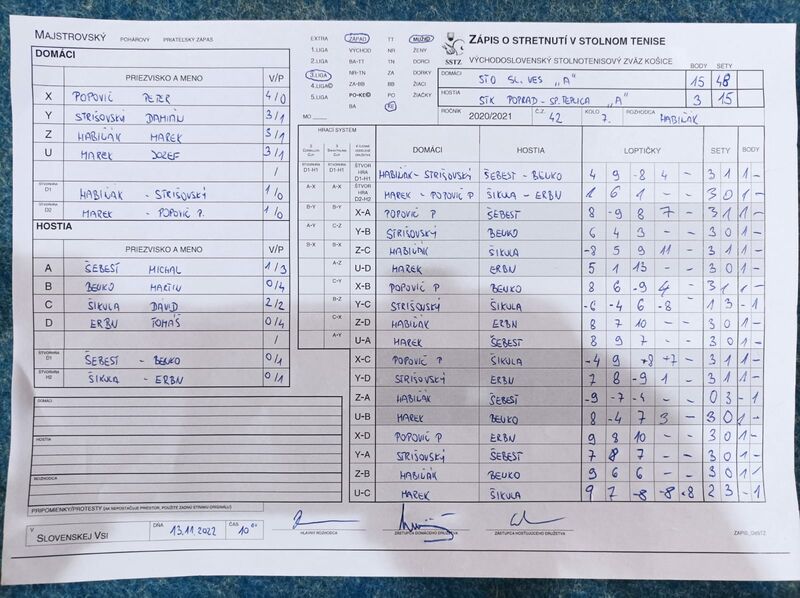 MAJSTROVSKÝ POHÁROVÝ PRIATEĽSKÝ ZÁPAS
EXTRA ZÁPAD TT MUŽI
1.LIGA VÝCHOD NR ŽENY
2.LIGA BA-TT TN DORCI
3.LIGA NR-TN ZA DORKY
4.LIGA ZA-BB BB ŽIACI
5.LIGA PO-KE PO ŽIAČKY
BA KE
MO
SSTZ
ZÁPIS O STRETNUTÍ V STOLNOM TENISE
VÝCHODOSLOVENSKÝ STOLNOTENISOVÝ ZVÄZ KOŠICE
BODY SETY
DOMÁCI STO SL. VES "A" 15 48
HOSTIA STK POPRAD - SP. TEPLICA "A" 3 15
ROČNÍK 2020/2021 Č.Z. 42 KOLO 7. ROZHODCA HABIŇÁK
DOMÁCI
PRIEZVISKO A MENO V/P
X POPOVIČ PETER 4/0
Y STRIŠOVSKÝ DAMIÁN 3/1
Z HABIŇÁK MAREK 3/1
U MAREK JOZEF 3/1
/
ŠTVORHRA D1 HABIŇÁK - STRIŠOVSKÝ 1/0
ŠTVORHRA D2 MAREK - POPOVIČ P. 1/0
HOSTIA
PRIEZVISKO A MENO V/P
A ŠEBEST MICHAL 1/3
B BEUKO MARTIN 0/4
C ŠIKULA DÁVID 2/2
D ERBN TOMÁŠ 0/4
/
ŠTVORHRA ŠEBEST - BEUKO 0/1
ŠTVORHRA H2 ŠIKULA - ERBN 0/1
DOMÁCI
HOSTIA
ROZHODCA
PRIPOMIENKY/PROTESTY (AK NEPOSTAČUJE PRIESTOR, POUŽITE ZADNÚ STRANU ORIGINÁLU)
HRACÍ SYSTÉM DOMÁCI HOSTIA LOPTIČKY SETY BODY
ŠTVORHRA D1-H1 HABIŇÁK - STRIŠOVSKÝ ŠEBEST - BEUKO 4 9 -8 4 - 3 1 1 -
A-X ŠTVORHRA D2-H2 MAREK - POPOVIČ P ŠIKULA - ERBN 1 6 1 - - 3 0 1 -
X-A POPOVIČ P ŠEBEST 8 -9 8 7 - 3 1 1 -
Y-B STRIŠOVSKÝ BEUKO 6 4 3 - - 3 0 1 -
Z-C HABIŇÁK ŠIKULA -8 5 9 11 - 3 1 1 -
U-D MAREK ERBN 5 1 13 - - 3 0 1 -
X-B POPOVIČ P BEUKO 8 6 -9 4 - 3 1 1 -
Y-C STRIŠOVSKÝ ŠIKULA -6 -4 6 -8 1 3 - 1
Z-D HABIŇÁK ERBN 8 7 10 - - 3 0 1 -
U-A MAREK ŠEBEST 8 9 7 - - 3 0 1 -
X-C POPOVIČ P ŠIKULA -4 9 +8 +7 - 3 1 1 -
Y-D STRIŠOVSKÝ ERBN 7 8 -9 1 - 3 1 1 -
Z-A HABIŇÁK ŠEBEST -9 -7 -4 - - 0 3 - 1
U-B MAREK BEUKO 8 -4 7 3 - 3 1 -
X-D POPOVIČ P ERBN 9 8 10 - - 3 0 1 -
Y-A STRIŠOVSKÝ ŠEBEST 7 8 7 - - 3 0 1 -
Z-B HABIŇÁK BEUKO 9 6 6 - - 3 0 1 -
U-C MAREK ŠIKULA 9 7 -8 -8 -8 2 3 - 1
V SLOVENSKEJ VSI DŇA 13.11.2022 ČAS 10
HLAVNÝ ROZHODCA ZÁSTUPCA DOMÁCEHO DRUŽSTVA ZÁSTUPCA HOSŤUJÚCEHO DRUŽSTVA